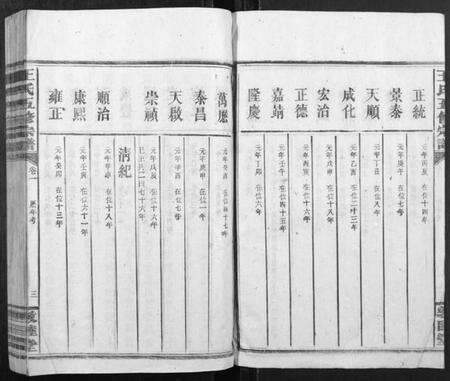 王氏五修宗譜
正統
元年丙辰 在位十四年
景泰
元年庚午 在位七年
天順
元年丁丑 在位八年
成化
元年乙酉 在位二十三年
宏治
元年戊申 在位十八年
正德
元年丙寅 在位十六年
嘉靖
在位四十五年
隆慶
元年丁卯 在位六年
萬曆
元年癸酉 在位四十七年
泰昌
元年庚申 在位一年
天啟
元年辛酉 在位七年
崇禎
元年戊辰 在位十六年
清紀
順治
在位十八年
康熙
元年壬寅 在位六十一年
雍正
元年癸卯 在位十三年
王氏五修宗譜
卷一
歷年考
三